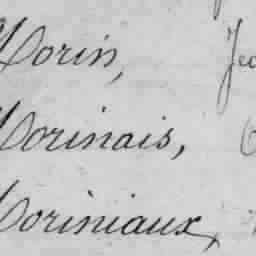 Morin,
Morinais,
Moriniaux,